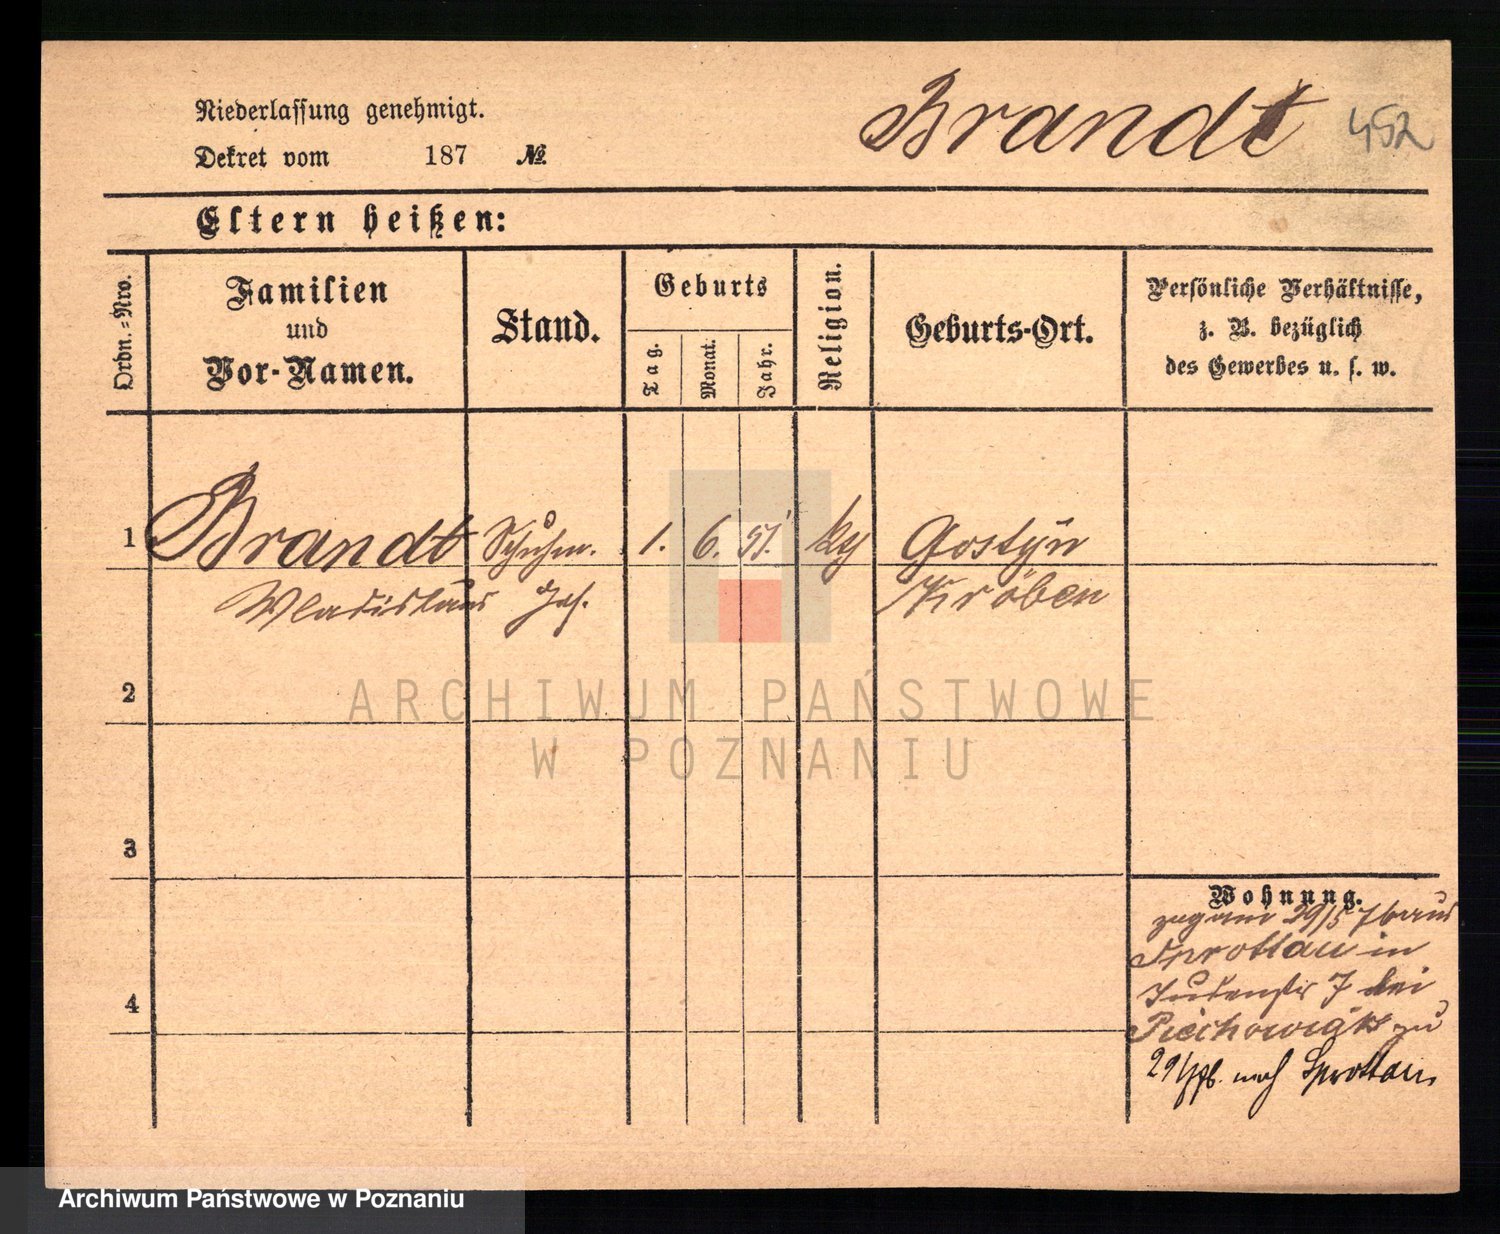 Niederlassung genehmigt.
Brandt
452
Dekret vom 187 №
Eltern heißen:
Ordn.-Nro.
Familien
und
Vor-Namen.
Stand.
Geburts
Tag.
Monat.
Jahr.
Religion.
Geburts-Ort.
Persönliche Verhältnisse,
z. B. bezüglich
des Gewerbes u. s. w.
1 Brandt Schuhm. 1. 6. 51. Gostÿn
Wladislaus Kröben
2
ARCHIWUM PAŃSTWOWE
W POZNANIU
3
Wohnung.
29/5 76 aus
Sprottau in
Judenstr 7 bei
Piechowiak zu
nach Sprottau
4
Archiwum Państwowe w Poznaniu